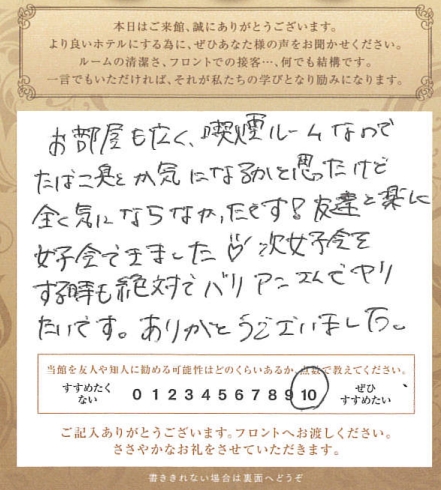 本日はご来館、誠にありがとうございます。
より良いホテルにする為に、ぜひあなた様の声をお聞かせください。
ルームの清潔さ、フロントでの接客…、何でも結構です。
一言でもいただければ、それが私たちの学びとなり励みになります。
お部屋も広く、喫煙ルームなので
たばこ臭とか気になるかと思ったけど
全く気にならなかったです！友達と楽しく
女子会できました♡次女子会を
する時も絶対でバリアンさんでやり
たいです。ありがとうございました。
当館を友人や知人に勧める可能性はどのくらいあるか、点数で教えてください。
すすめたくない 0 1 2 3 4 5 6 7 8 9 10 ぜひすすめたい
ご記入ありがとうございます。フロントへお渡しください。
ささやかなお礼をさせていただきます。
書ききれない場合は裏面へどうぞ